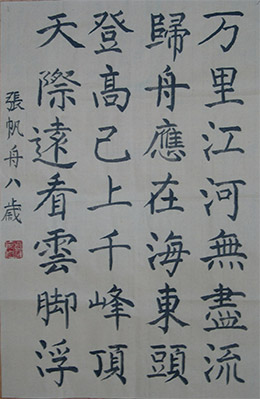 万里江河無盡流
歸舟應在海東頭
登高已上千峰頂
天際遠看雲脚浮
張帆舟八歲